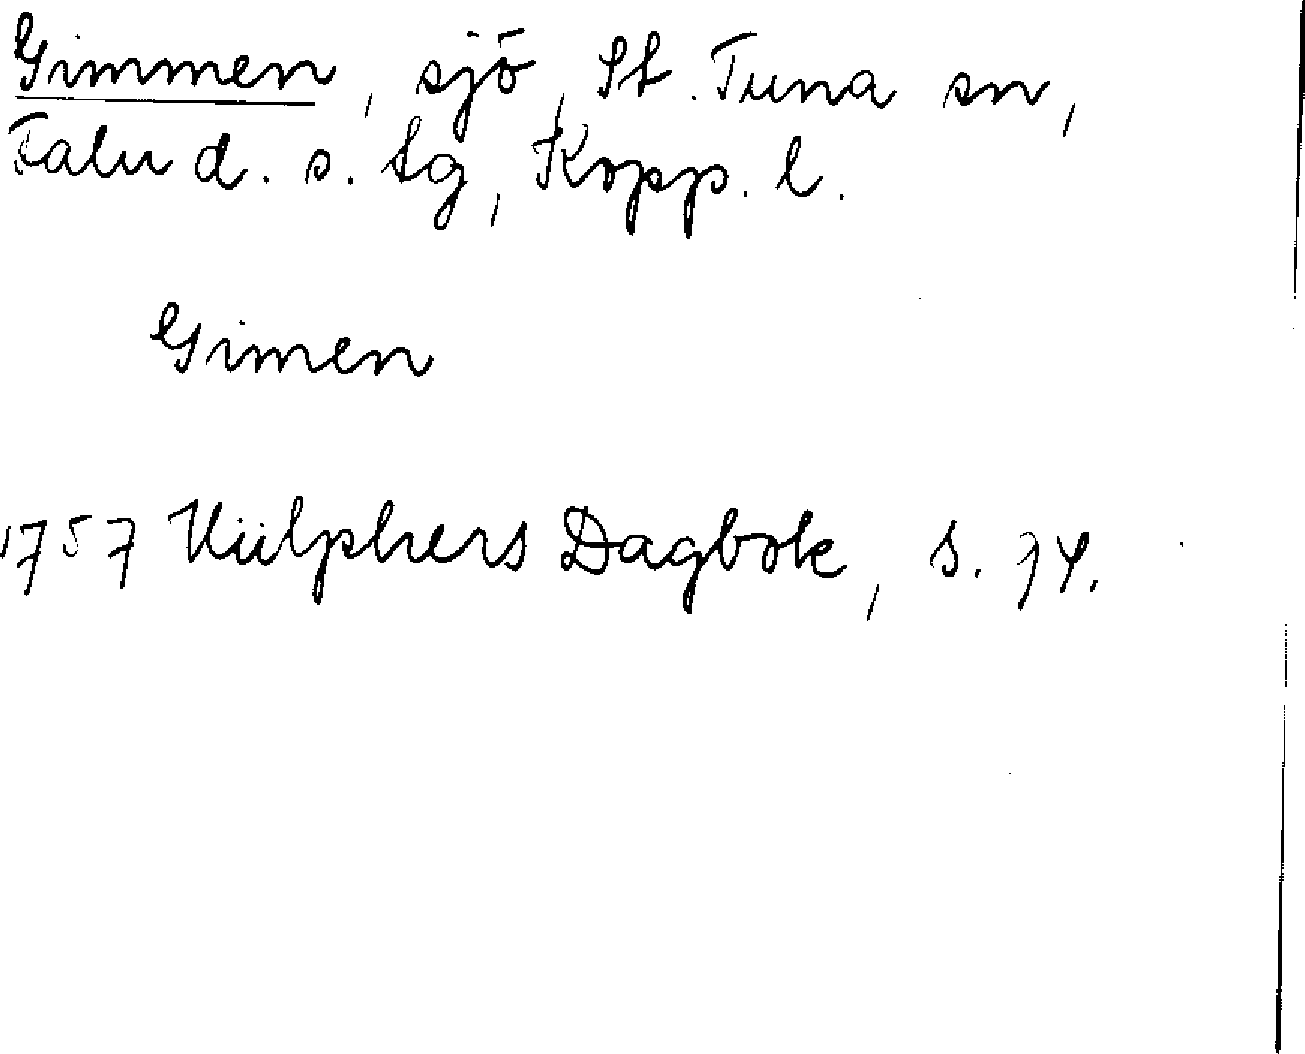 Gimmen, sjö, St. Tuna sn,
Falu d. s. tg, Kopp. l.
Gimen
1757 Hülphers Dagbok, s. 74.